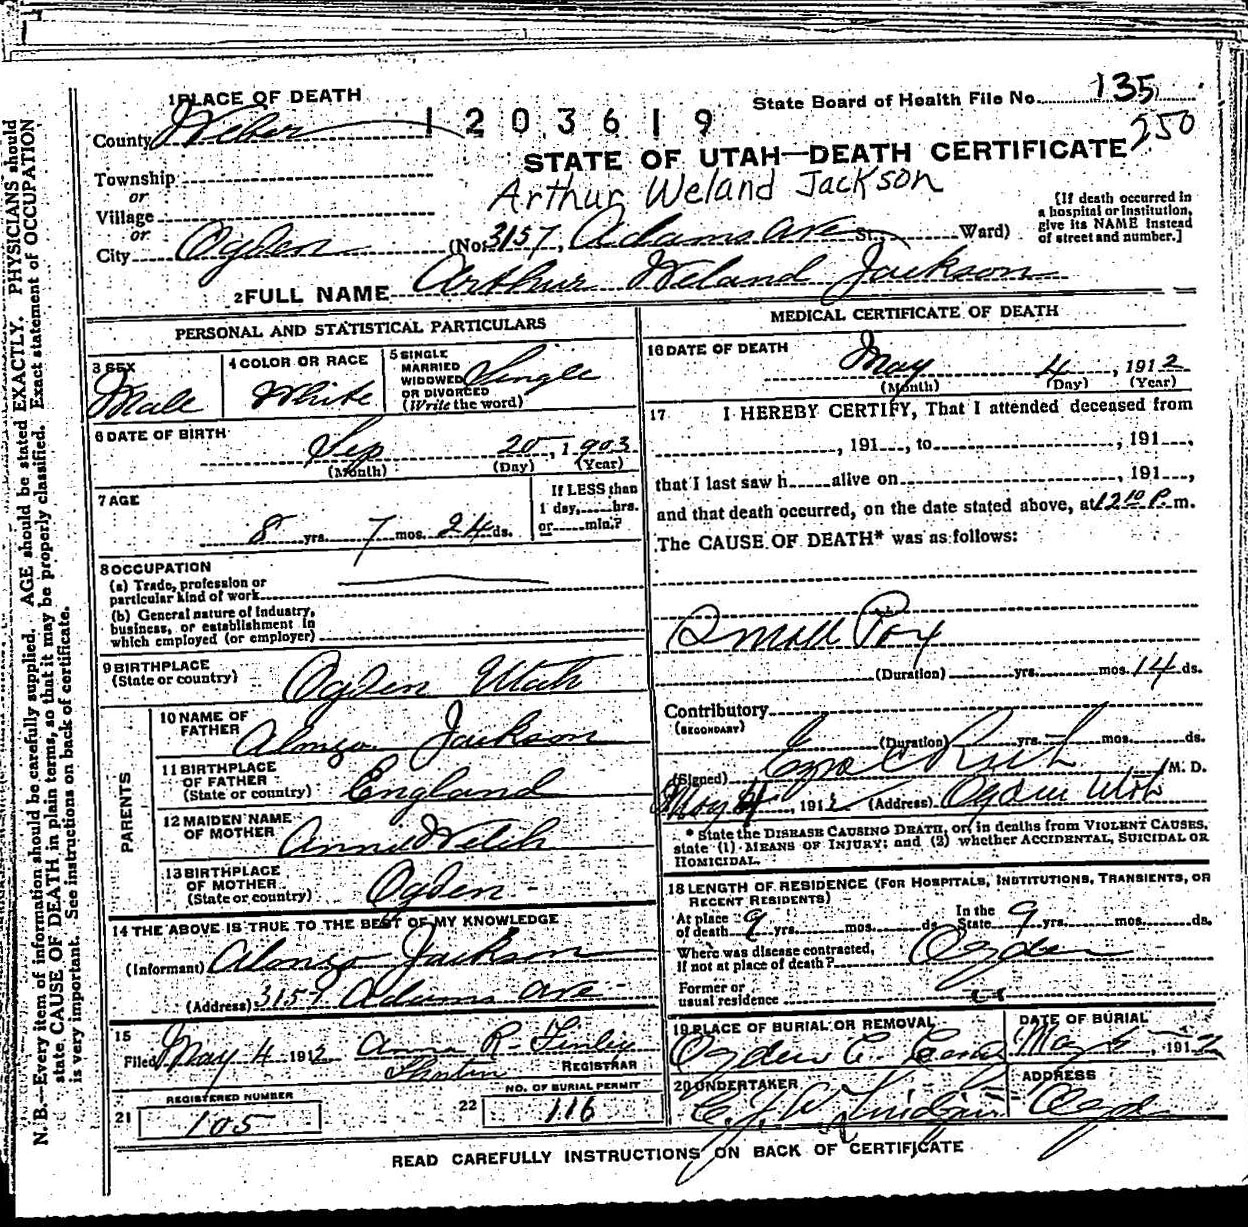 1 PLACE OF DEATH
State Board of Health File No. 135
County Weber
1203619
250
STATE OF UTAH—DEATH CERTIFICATE
Township
or
Arthur Weland Jackson
Village
or
City Ogden (No. 3157, Adams Ave St. Ward)
[If death occurred in
a hospital or institution,
give its NAME instead
of street and number.]
2 FULL NAME Arthur Weland Jackson
PERSONAL AND STATISTICAL PARTICULARS
3 SEX
Male
4 COLOR OR RACE
White
5 SINGLE
MARRIED
WIDOWED
OR DIVORCED
(Write the word)
Single
6 DATE OF BIRTH
Sep 20, 1903
(Month) (Day) (Year)
7 AGE
8 yrs. 7 mos. 24 ds.
If LESS than
1 day, hrs.
or min.?
8 OCCUPATION
(a) Trade, profession or
particular kind of work
(b) General nature of industry,
business, or establishment in
which employed (or employer)
9 BIRTHPLACE
(State or country)
Ogden Utah
PARENTS
10 NAME OF
FATHER
Alonzo Jackson
11 BIRTHPLACE
OF FATHER
(State or country)
England
12 MAIDEN NAME
OF MOTHER
Annie Welch
13 BIRTHPLACE
OF MOTHER
(State or country)
Ogden
14 THE ABOVE IS TRUE TO THE BEST OF MY KNOWLEDGE
(Informant) Alonzo Jackson
(Address) 3157 Adams Ave
15
Filed May 4 1912 Anna R.
REGISTRAR
REGISTERED NUMBER
21 105
NO. OF BURIAL PERMIT
22 116
MEDICAL CERTIFICATE OF DEATH
16 DATE OF DEATH
May 4, 1912
(Month) (Day) (Year)
17 I HEREBY CERTIFY, That I attended deceased from
, 191 , to , 191 ,
that I last saw h alive on , 191 ,
and that death occurred, on the date stated above, at 12 10 P. m.
The CAUSE OF DEATH* was as follows:
Small Pox
(Duration) yrs. mos. 14 ds.
Contributory
(SECONDARY)
(Duration) yrs. mos. ds.
(Signed) Ezra C Rich M. D.
May 4, 1912 (Address) Ogden Utah
* State the DISEASE CAUSING DEATH, or, in deaths from VIOLENT CAUSES,
state (1) MEANS OF INJURY; and (2) whether ACCIDENTAL, SUICIDAL OR
HOMICIDAL.
18 LENGTH OF RESIDENCE (FOR HOSPITALS, INSTITUTIONS, TRANSIENTS, OR
RECENT RESIDENTS)
At place
of death 9 yrs. mos. ds.
In the
State 9 yrs. mos. ds.
Where was disease contracted,
If not at place of death? Ogden
Former or
usual residence
19 PLACE OF BURIAL OR REMOVAL
Ogden C.
DATE OF BURIAL
May 5, 1912
20 UNDERTAKER
ADDRESS
Ogden
READ CAREFULLY INSTRUCTIONS ON BACK OF CERTIFICATE
N. B.—Every item of information should be carefully supplied. AGE should be stated EXACTLY. PHYSICIANS should
state CAUSE OF DEATH in plain terms, so that it may be properly classified. Exact statement of OCCUPATION
is very important. See instructions on back of certificate.